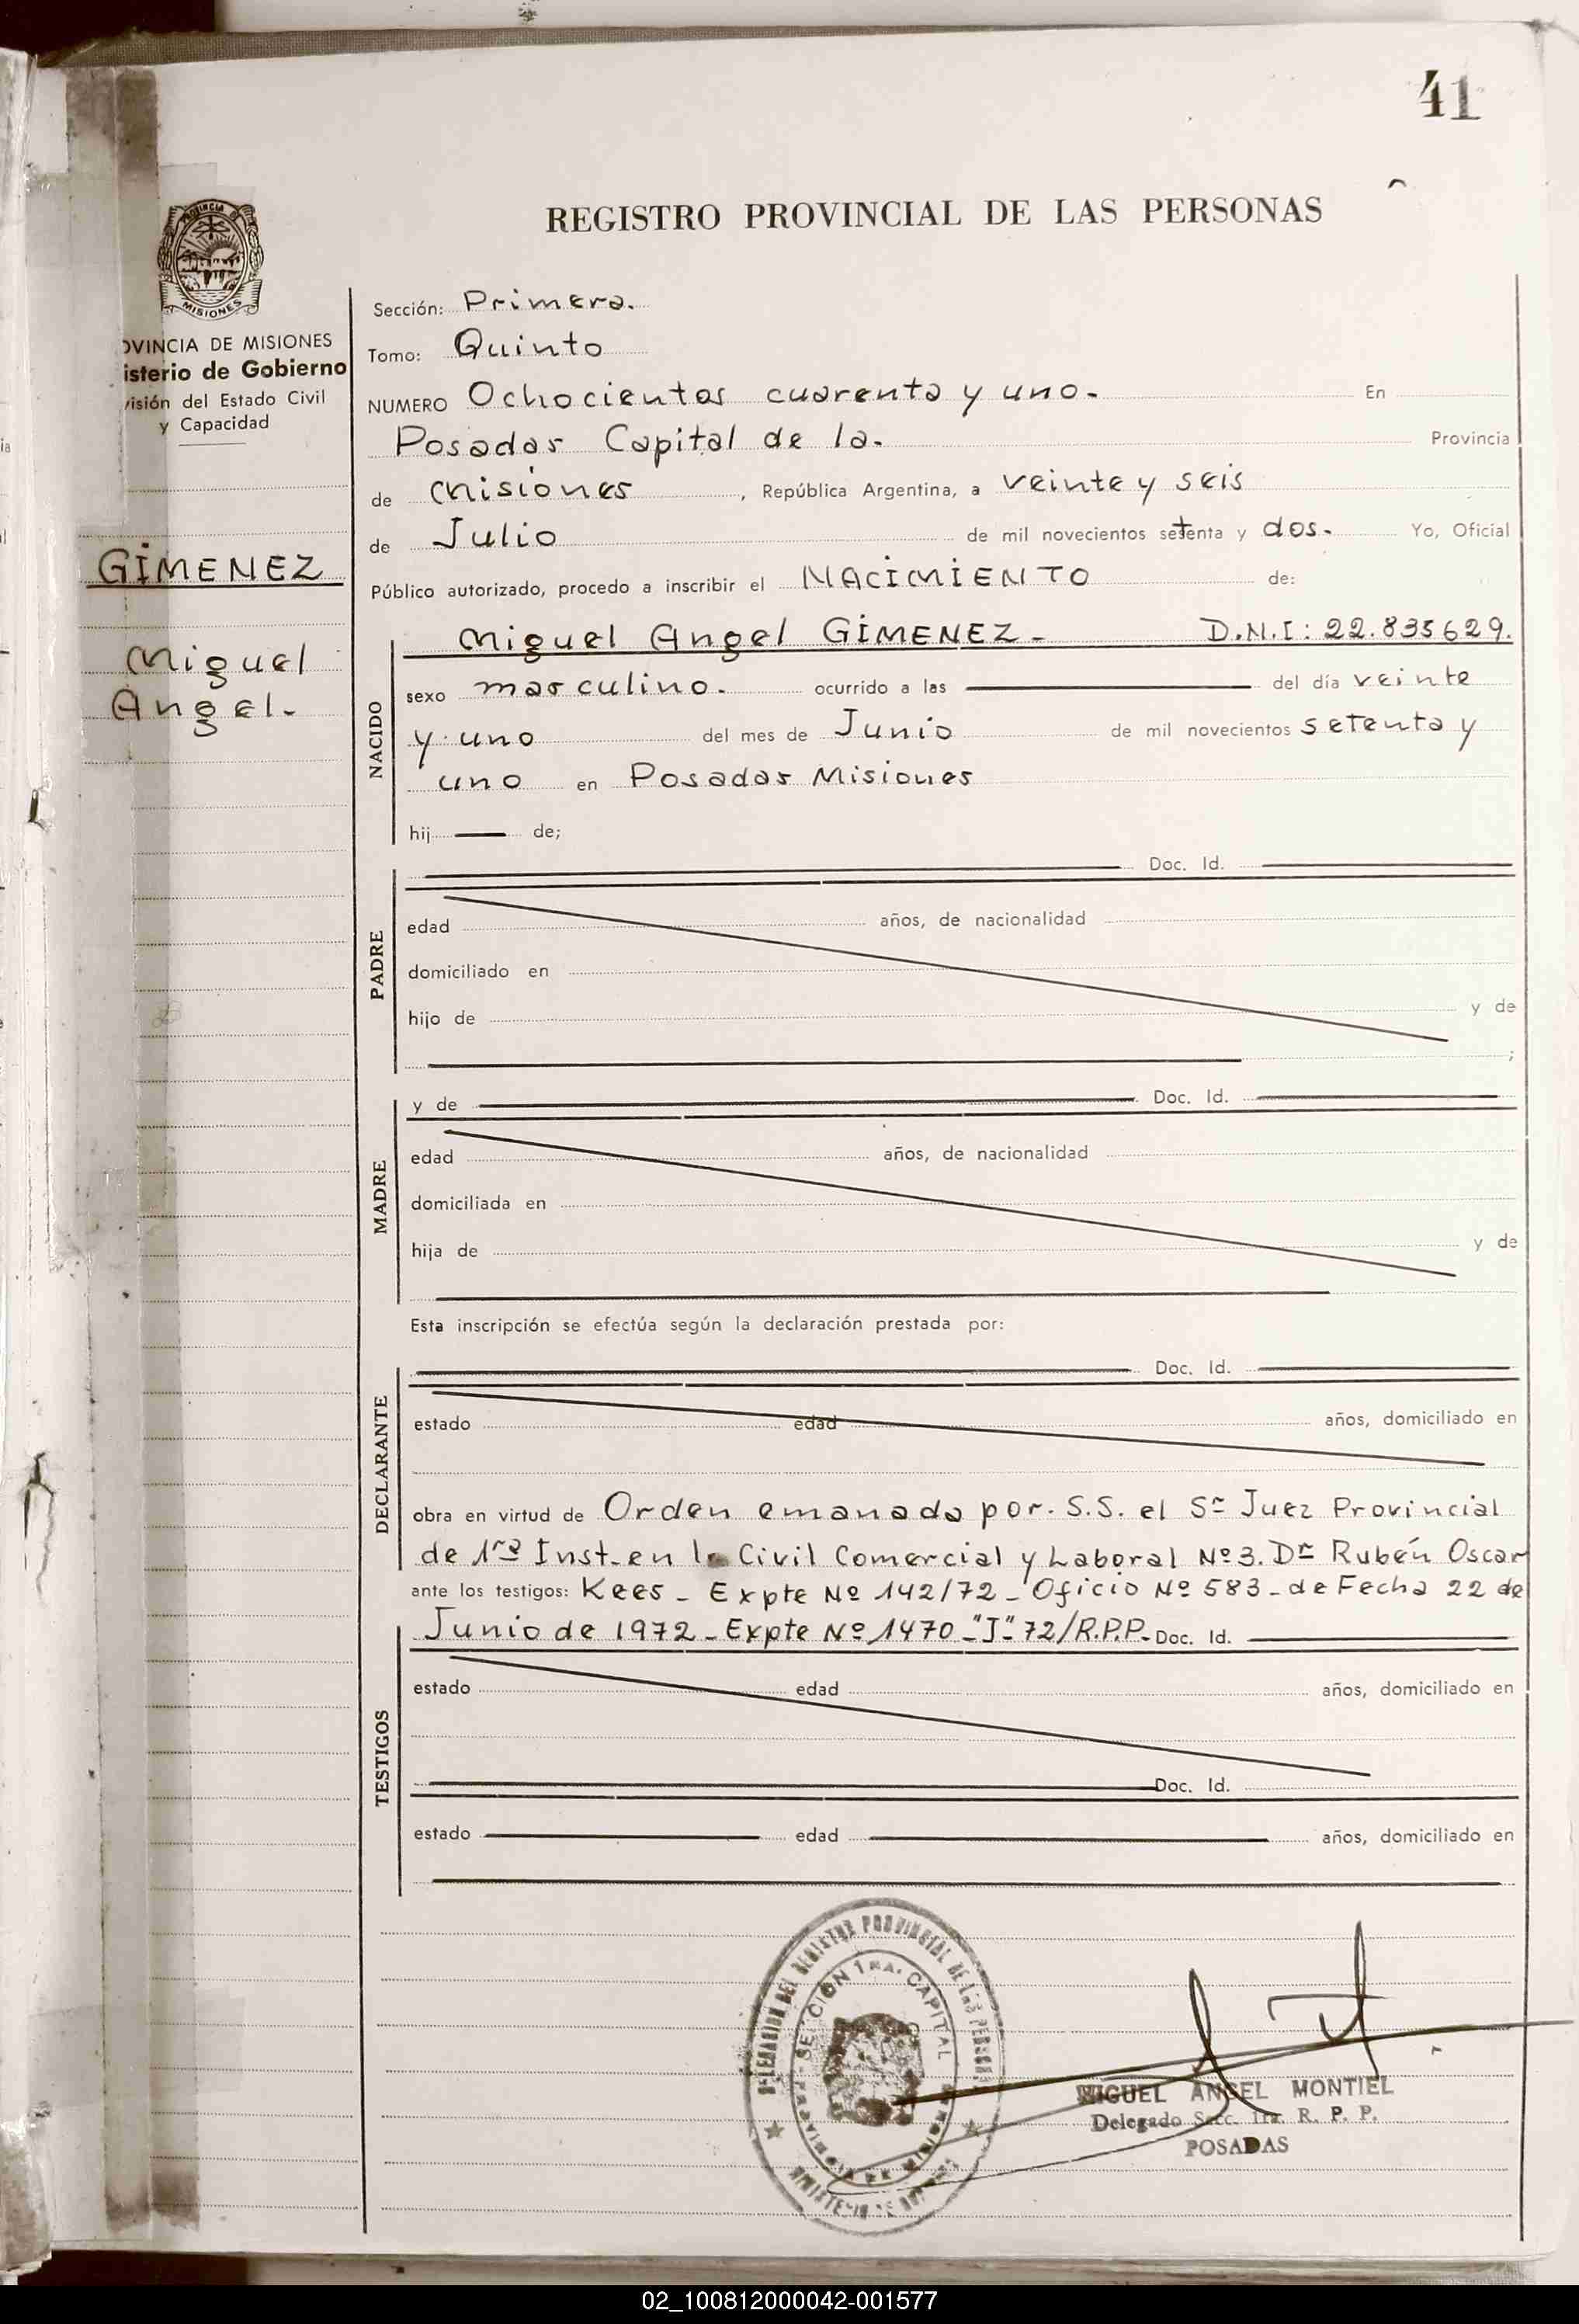 41
REGISTRO PROVINCIAL DE LAS PERSONAS
PROVINCIA DE
MISIONES
OVINCIA DE MISIONES
isterio de Gobierno
visión del Estado Civil
y Capacidad
GIMENEZ
Miguel
Angel.
Sección: Primera.
Tomo: Quinto
NUMERO Ochocientos cuarenta y uno. En
Posadas Capital de la. Provincia
de Misiones, República Argentina, a veinte y seis
de Julio de mil novecientos setenta y dos. Yo, Oficial
Público autorizado, procedo a inscribir el NACIMIENTO de:
NACIDO
Miguel Angel GIMENEZ - D.N.I: 22.835629.
sexo masculino. ocurrido a las del día veinte
y uno del mes de Junio de mil novecientos setenta y
uno en Posadas Misiones
hij de;
PADRE
Doc. Id.
edad años, de nacionalidad
domiciliado en
hijo de y de
;
MADRE
y de Doc. Id.
edad años, de nacionalidad
domiciliada en
hija de y de
Esta inscripción se efectúa según la declaración prestada por:
DECLARANTE
Doc. Id.
estado edad años, domiciliado en
obra en virtud de Orden emanada por. S.S. el Sr Juez Provincial
de 1ra Inst. en lo Civil Comercial y Laboral Nº 3. Dr Rubén Oscar
ante los testigos: Kees - Expte Nº 142/72 - Oficio Nº 583 - de Fecha 22 de
Junio de 1972 - Expte Nº 1470 -"J"- 72/R.P.P. Doc. Id.
TESTIGOS
estado edad años, domiciliado en
Doc. Id.
estado edad años, domiciliado en
DELEGACION DEL REGISTRO PROVINCIAL DE LAS PERSONAS
SECCION 1RA. CAPITAL
MIGUEL ANGEL MONTIEL
Delegado Secc. 1ra. R. P. P.
POSADAS
02_100812000042-001577